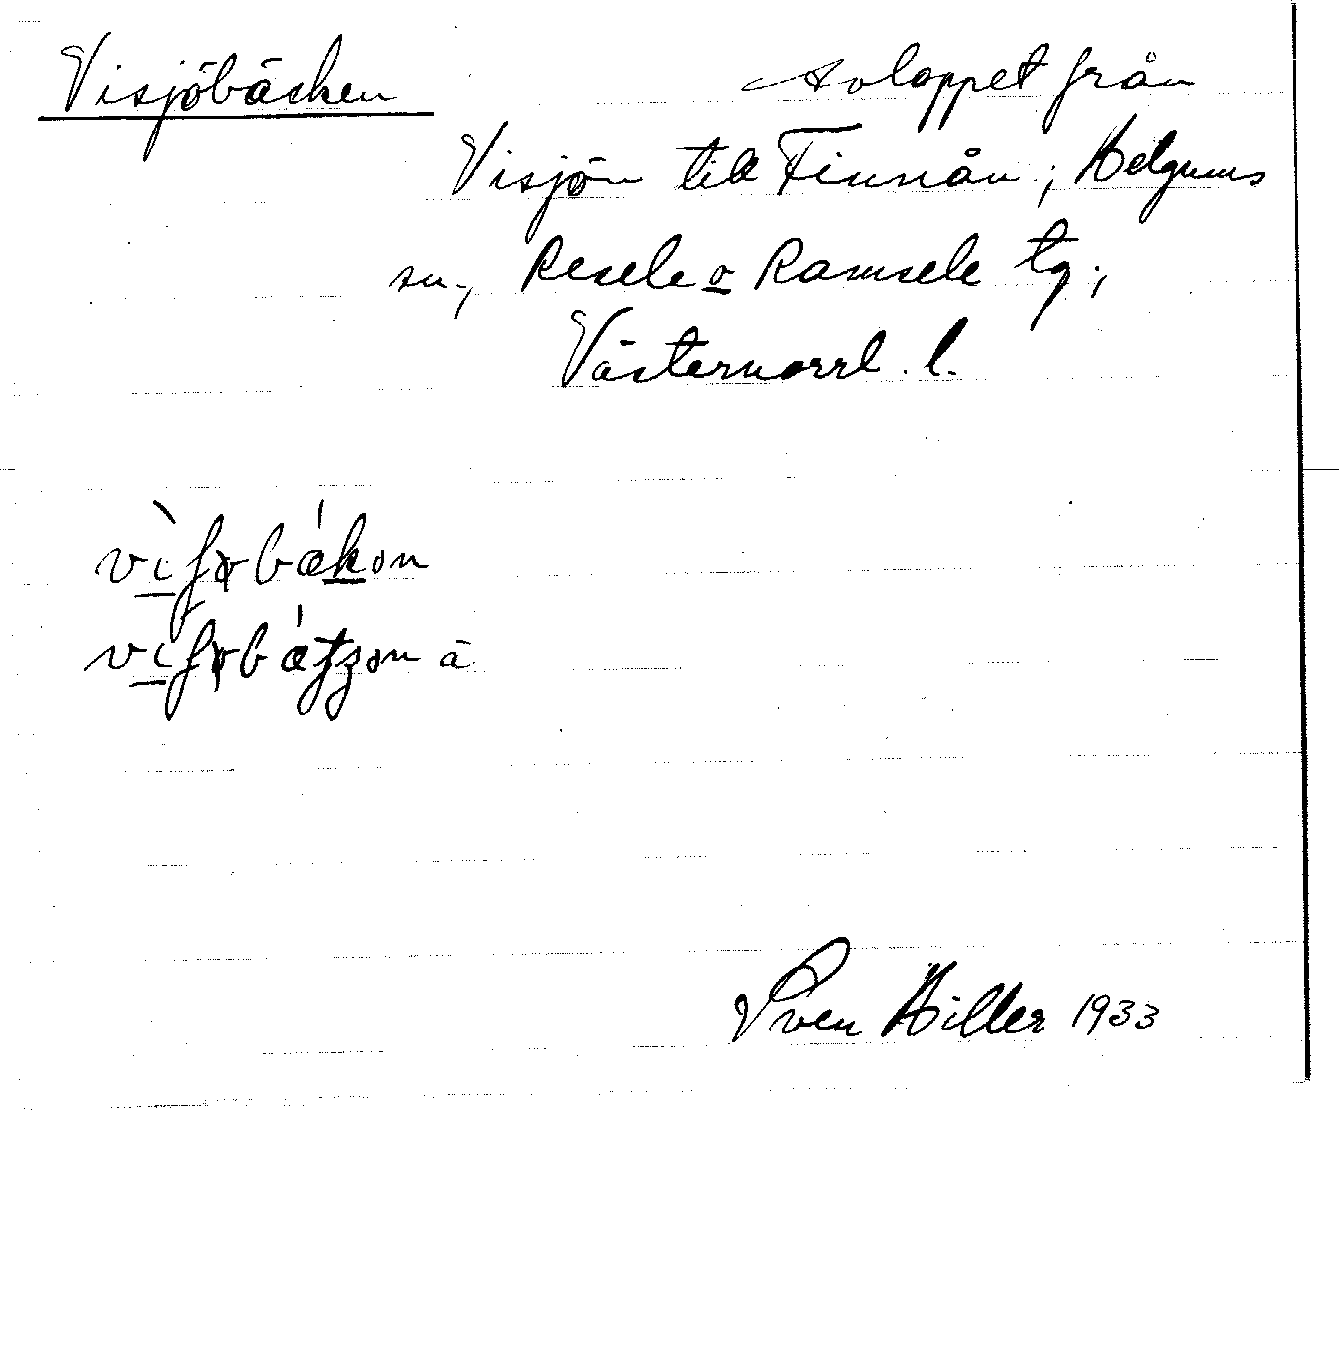 Visjöbäcken Avloppet från
Visjön till Finnån; Helgums
sn., Resele o Ramsele tg;
Västernorrl. l.
Sven Hiller 1933